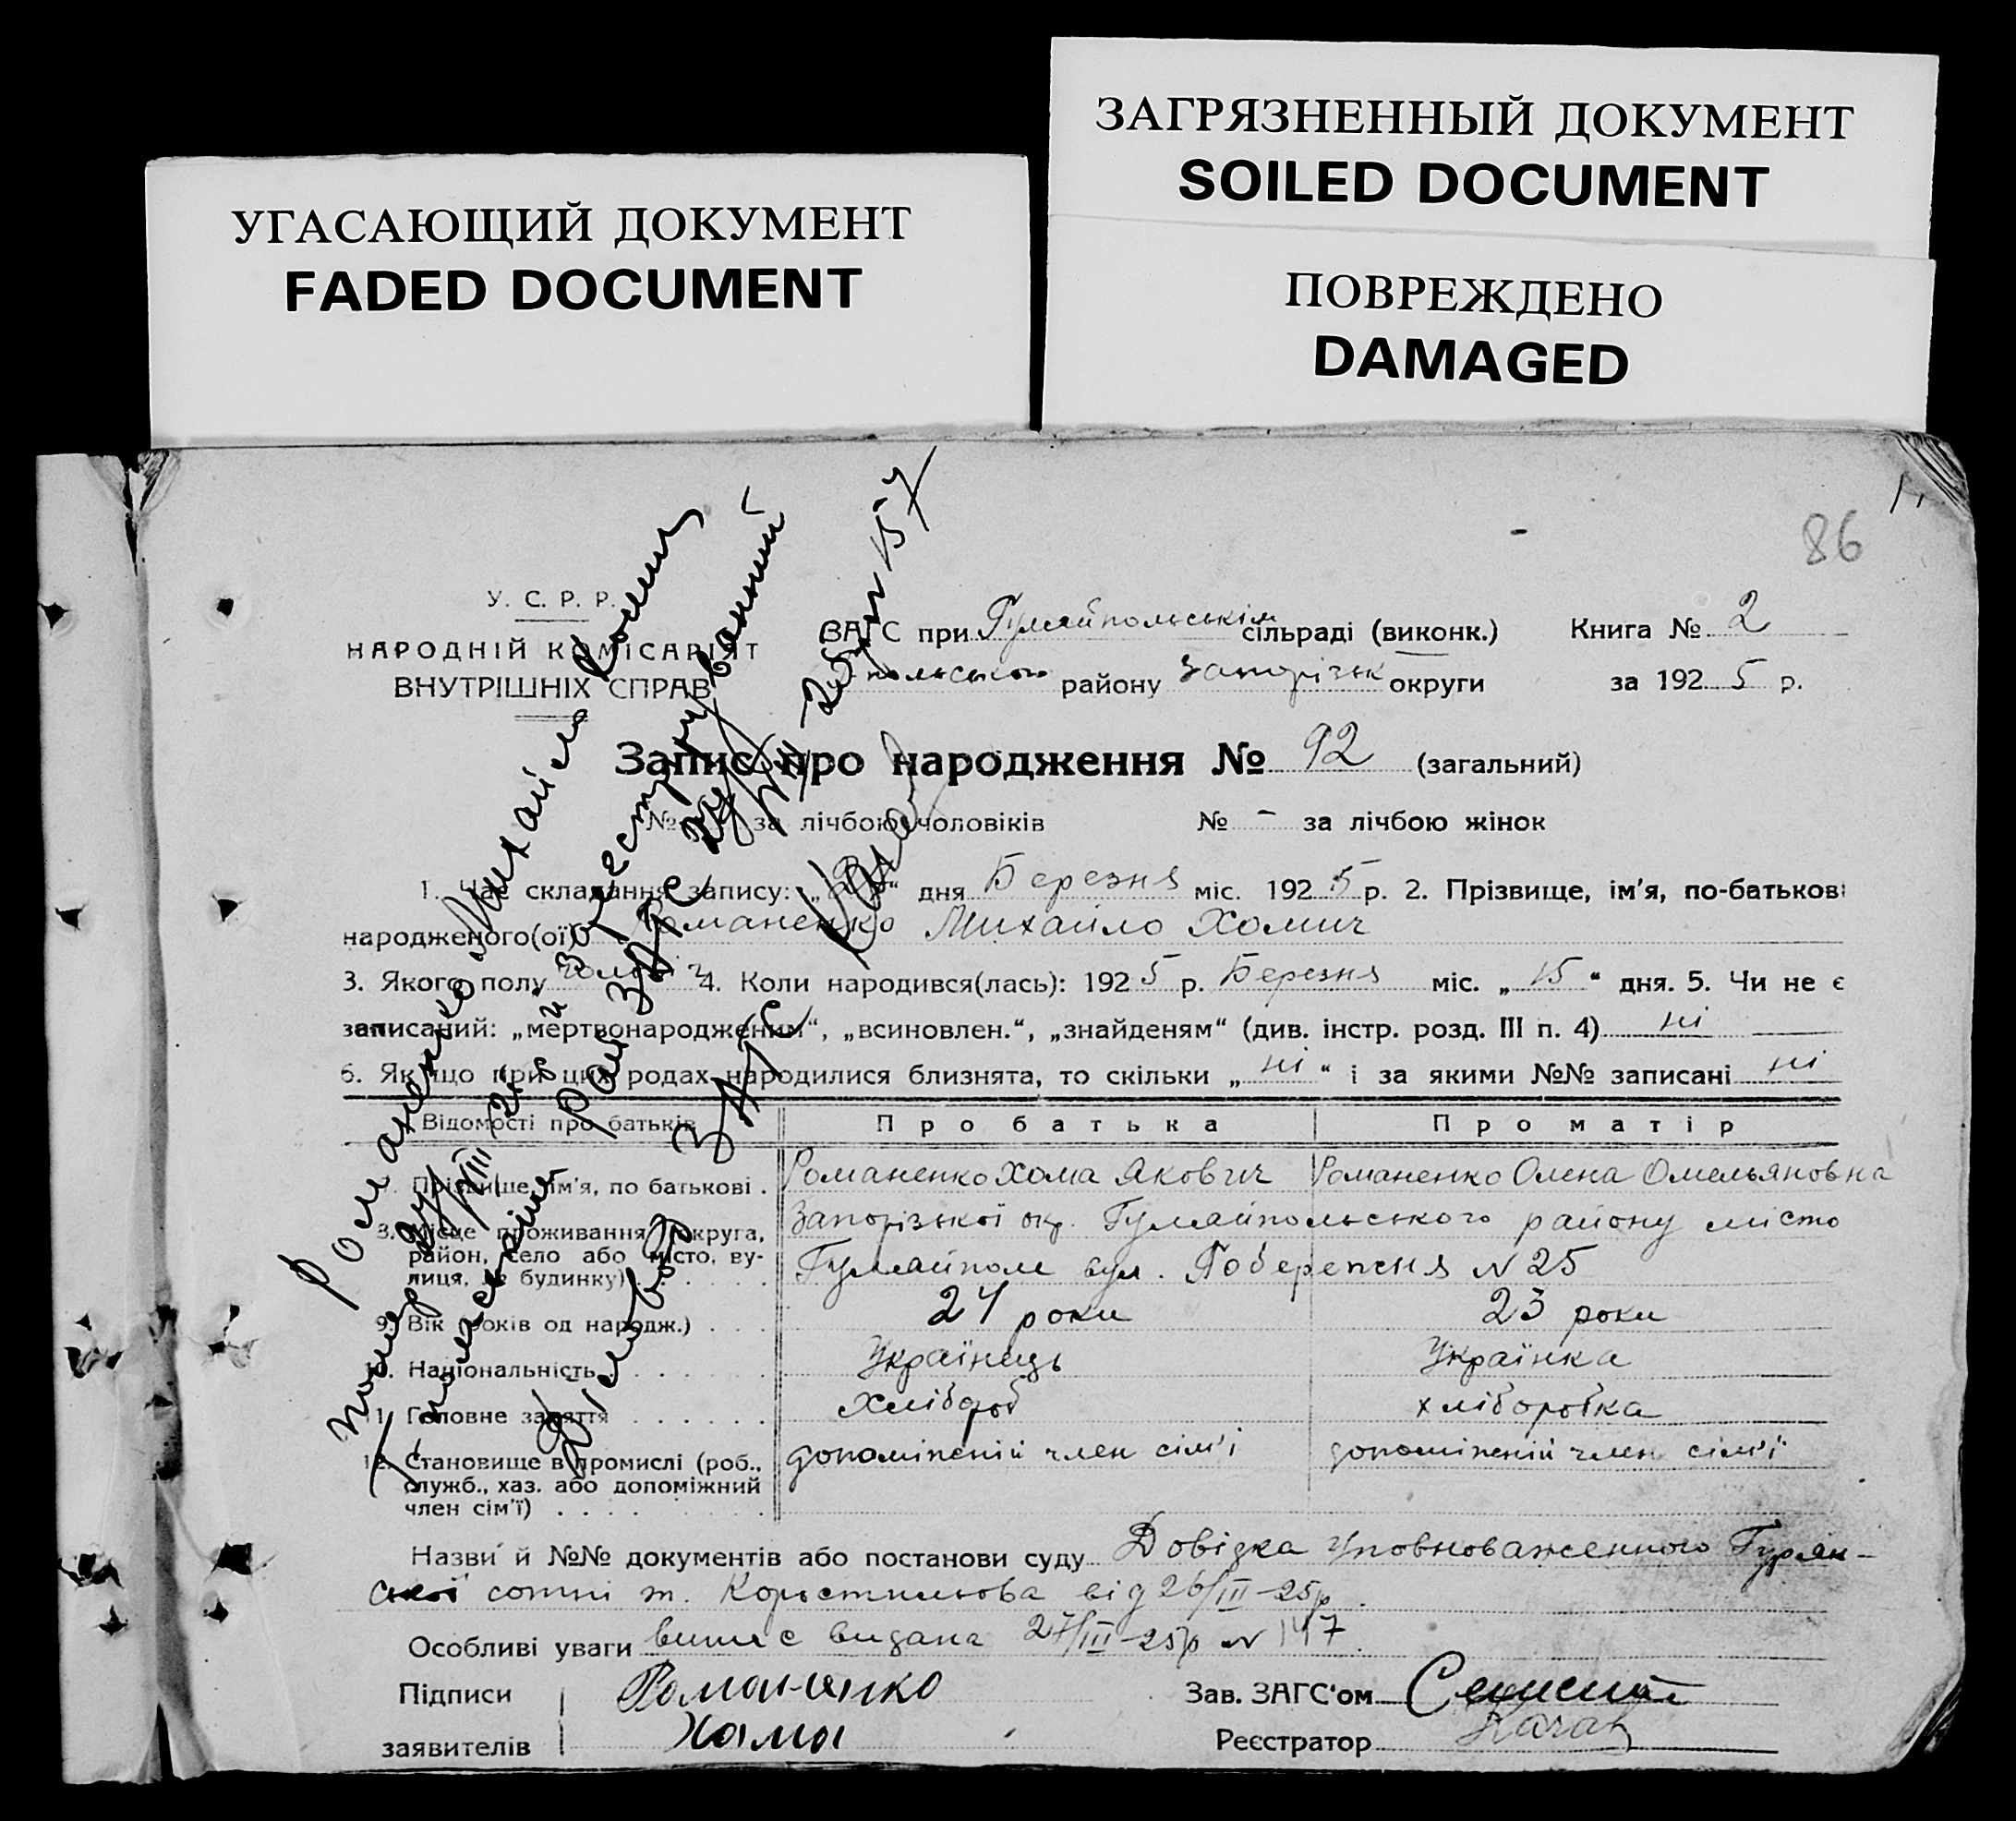 ЗАГРЯЗНЕННЫЙ ДОКУМЕНТ
SOILED DOCUMENT
УГАСАЮЩИЙ ДОКУМЕНТ
FADED DOCUMENT
ПОВРЕЖДЕНО
DAMAGED
86
У. С. Р. Р.
НАРОДНІЙ КОМІСАРІЯТ
ВНУТРІШНІХ СПРАВ
ВАГС при Гуляйпольськім сільраді (виконк.) Книга № 2
польського району Запорізьк округи за 192 5 р.
Запис про народження № 92 (загальний)
№ за лічбою чоловіків № - за лічбою жінок
1. Час складання запису: дня Березня міс. 192 5 р. 2. Прізвище, ім'я, по-батькові
народженого(ої) Романенко Михайло Хомич
3. Якого полу 4. Коли народився(лась): 192 5 р. Березня міс. „ 15 “ дня. 5. Чи не є
записаний: „мертвонародженим“, „всиновлен.“, „знайденям“ (див. інстр. розд. III п. 4) ні
6. Якщо при цих родах народилися близнята, то скільки „ ні “ і за якими №№ записані ні
Відомості про батьків Про батька Про матір
Прізвище, ім'я, по батькові . Романенко Хома Якович Романенко Олена Омельяновна
Місце проживання округа, район, село або місто, вулиця, № будинку) Запорізької окр. Гуляйпольського району місто
Гуляйполе вул. N 25
9. Вік (років од народж.) . . . 24 роки 23 роки
Національність . . . . . . Українець Українка
11. Головне заняття . . . . . . Хлібороб хліборобка
12. Становище в промислі (роб., допоміжній член сім'ї допоміжній член сім'ї
служб., хаз. або допоміжний
член сім'ї) . . . .
Назви й №№ документів або постанови суду Довідка Уповноваженного
сотні т. від 26/III-25р.
Особливі уваги випис видана 27/III-25р N 147
Підписи Романенко Зав. ЗАГС'ом
заявителів Хома Реєстратор
Романенко Михайло Хомич